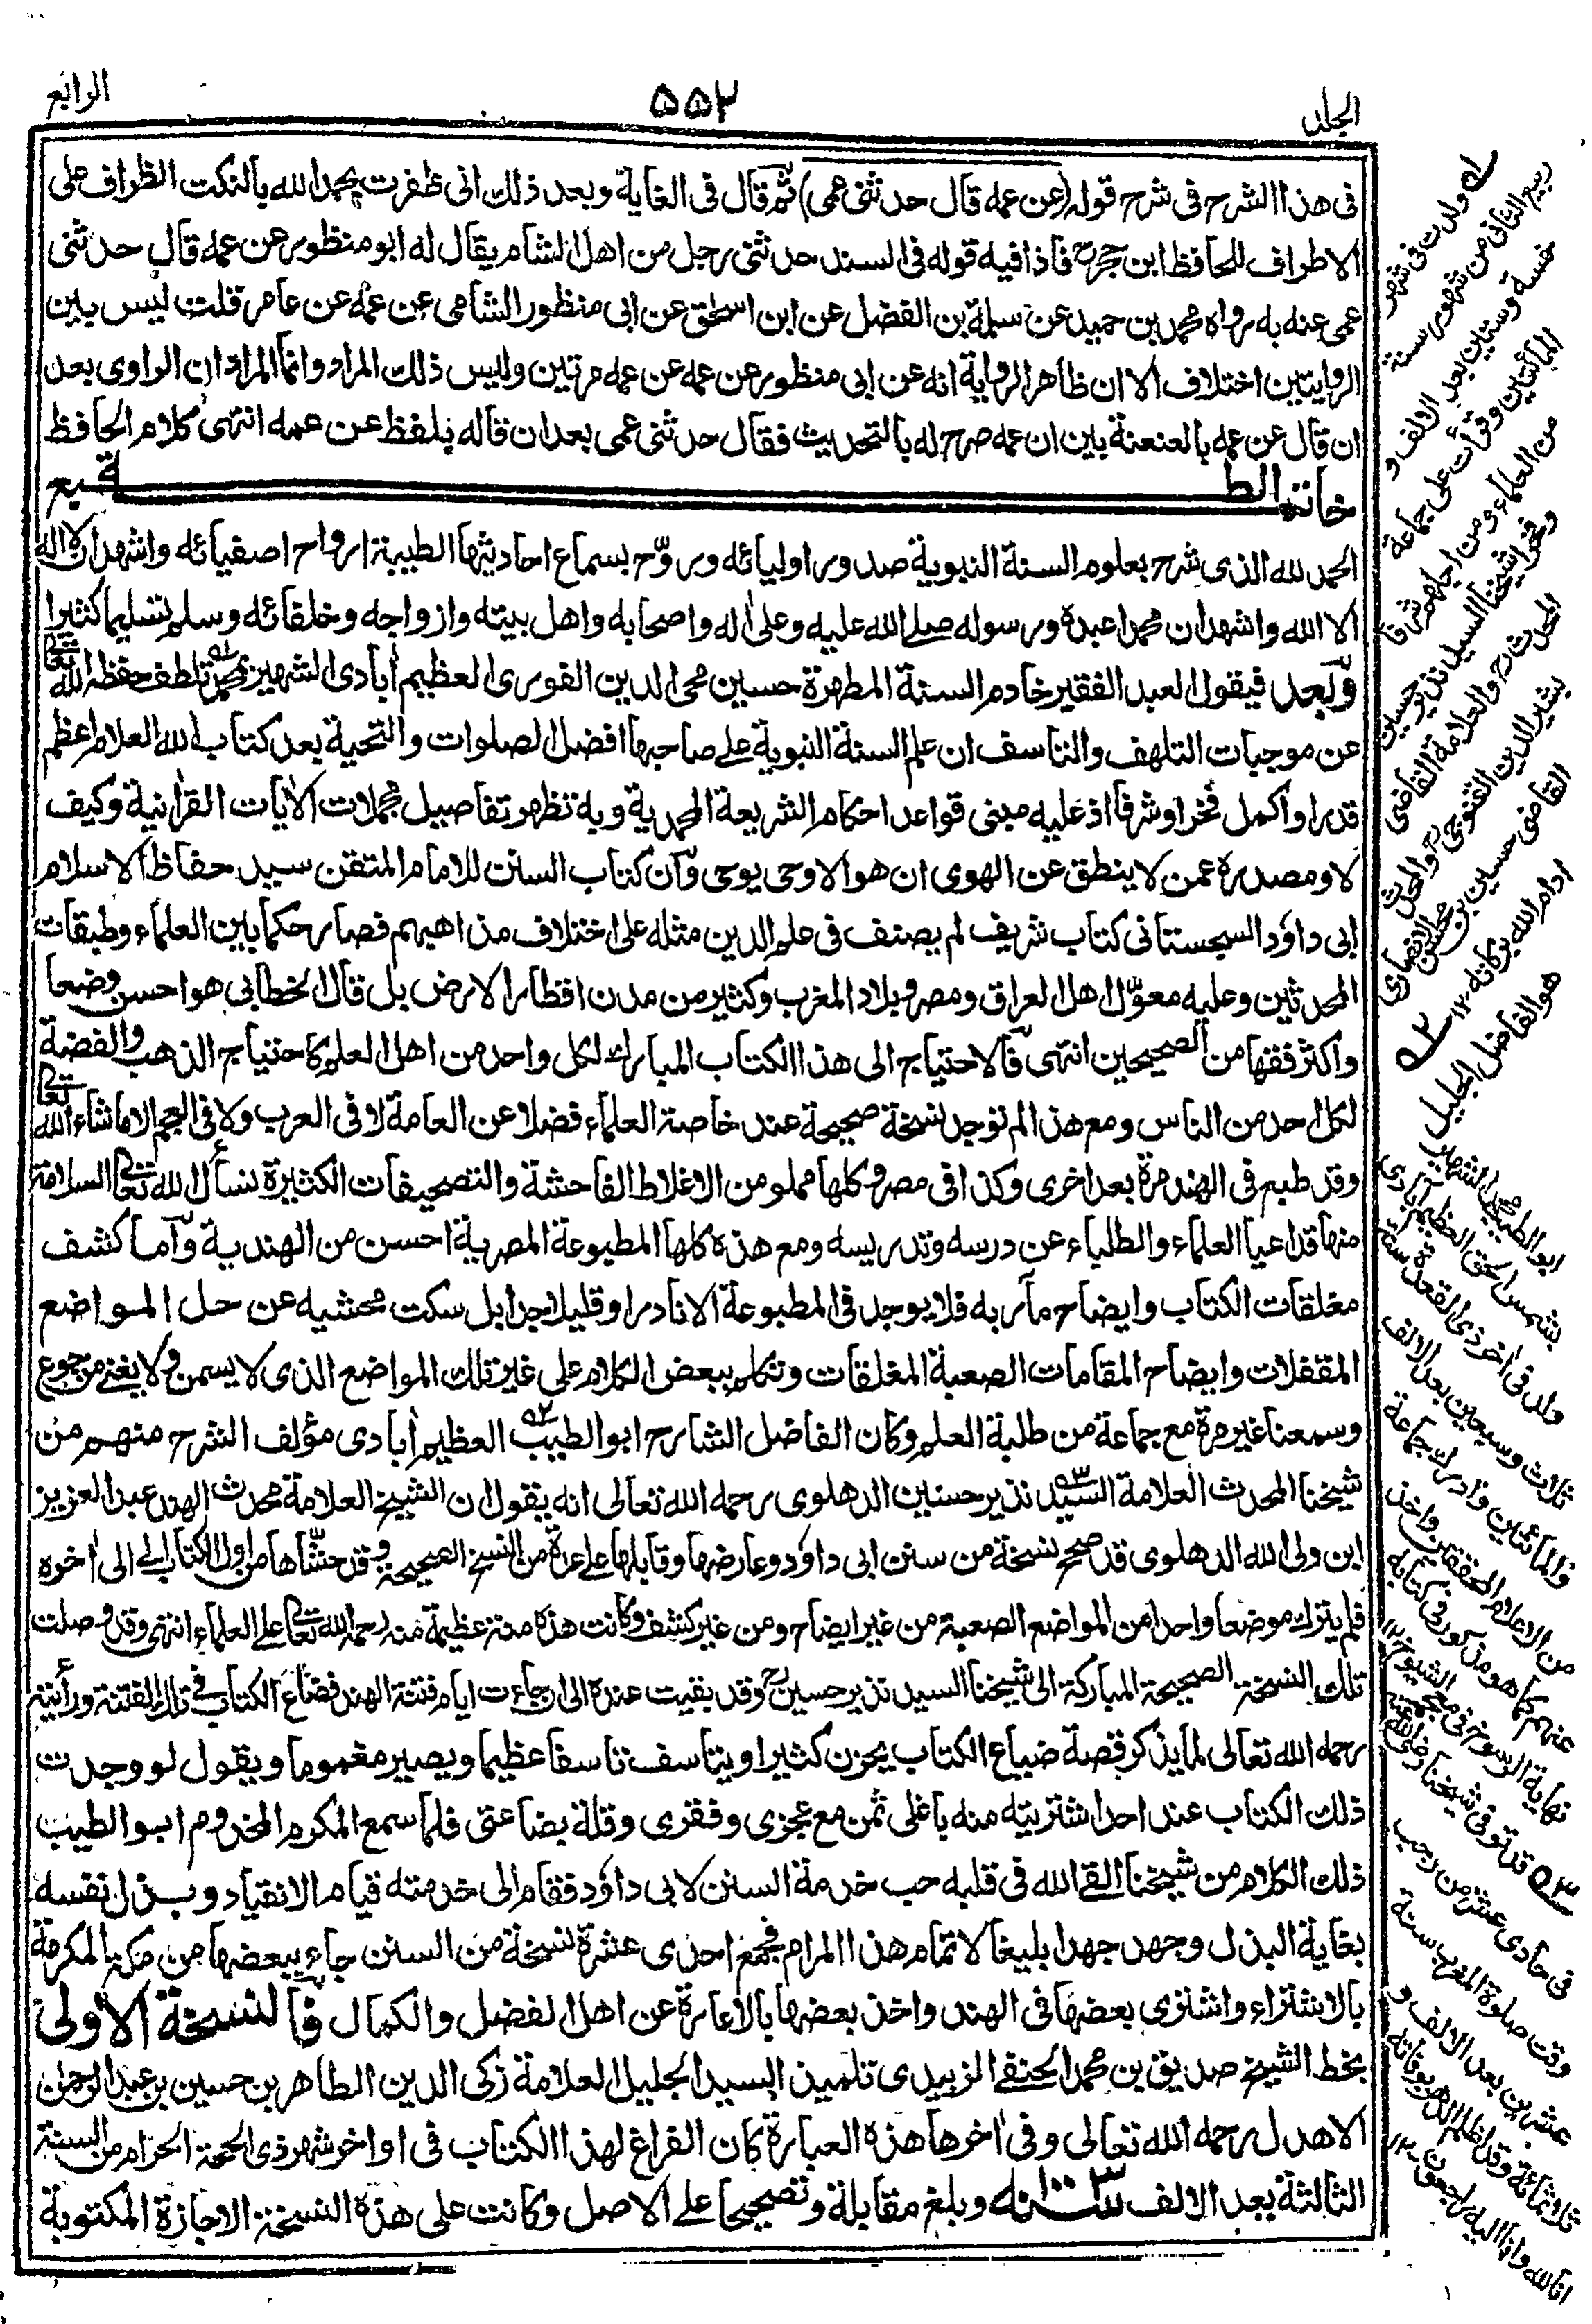 الجلد
٥٥٢
الرابع
فى هذا الشرح فى شرح قوله (عن عمه قال حدثنى عمى) ثم قال فى الغاية وبعد ذلك انى ظفرت بحمد الله بالنكت الظراف على
الاطراف للحافظ ابن حجر فاذا فيه قوله فى السند حدثنى رجل من اهل الشام يقال له ابو منظور عن عمه قال حدثنى
عمى عنه به رواه محمد بن حميد عن سلمة بن الفضل عن ابن اسحٰق عن ابى منظور الشامى عن عمه عن عامر قلت ليس بين
الروايتين اختلاف الا ان ظاهر الرواية انه عن ابى منظور عن عمه عن عمه مرتين وليس ذلك المراد وانما المراد ان الراوى بعد
ان قال عن عمه بالعنعنة بين ان عمه صرح له بالتحديث فقال حدثنى عمى بعد ان قاله بلفظ عن عمه انتهى كلام الحافظ
خاتمة الطبع
الحمد لله الذى شرح بعلوم السنة النبوية صدور اوليائه وروّح بسماع احاديثها الطيبة ارواح اصفيائه واشهد ان لا اله
الا الله واشهد ان محمدا عبده ورسوله صلى الله عليه وعلى اٰله واصحابه واهل بيته وازواجه وخلفائه وسلم تسليما كثيرا
وبعد فيقول العبد الفقير خادم السنة المطهرة حسين محى الدين الفورى العظيم اٰبادى الشهير بمحمد تلطف حفظه الله تعالى
عن موجبات التلهف والتاسف ان علم السنة النبوية على صاحبها افضل الصلوات والتحية بعد كتاب الله العلام اعظم
قدرا واكمل فخرا وشرفا اذ عليه مبنى قواعد احكام الشريعة المحمدية وبه تظهر تفاصيل مجملات الاٰيات القراٰنية وكيف
لا ومصدره عمن لا ينطق عن الهوى ان هو الا وحى يوحى وان كتاب السنن للامام المتقن سيد حفاظ الاسلام
ابى داؤد السجستانى كتاب شريف لم يصنف فى علم الدين مثله على اختلاف مذاهبهم فصار حكما بين العلماء وطبقات
المحدثين وعليه معوّل اهل العراق ومصر وبلاد المغرب وكثير من مدن اقطار الارض بل قال الخطابى هو احسن وضعا
واكثر فقها من الصحيحين انتهى فالاحتياج الى هذا الكتاب المبارك لكل واحد من اهل العلم كاحتياج الذهب والفضة
لكل احد من الناس ومع هذا لم توجد نسخة صحيحة عند خاصة العلماء فضلا عن العامة لا فى العرب ولا فى العجم الا ماشاء الله تعالى
وقد طبع فى الهند مرة بعد اخرى وكذا فى مصر وكلها مملو من الاغلاط الفاحشة والتصحيفات الكثيرة نسأل الله تعالى السلامة
منها قد اعيا العلماء والطلباء عن درسه وتدريسه ومع هذه كلها المطبوعة المصرية احسن من الهندية واما كشف
مغلقات الكتاب وايضاح مآربه فلا يوجد فى المطبوعة الا نادرا وقليلا جدا بل سكت محشيه عن حل المواضع
المقفلات وايضاح المقامات الصعبة المغلقات وتكلم ببعض الكلام على غير تلك المواضع الذى لا يسمن ولا يغنى من جوع
وسمعنا غير مرة مع جماعة من طلبة العلم وكان الفاضل الشارح ابو الطيب العظيم اٰبادى مؤلف الشرح منهم من
شيخنا المحدث العلامة السيد نذير حسين الدهلوى رحمه الله تعالى انه يقول ان الشيخ العلامة محدث الهند عبد العزيز
ابن ولى الله الدهلوى قد صحح نسخة من سنن ابى داؤد وعارضها وقابلها على عدة من النسخ الصحيحة وقد حشّاها من اول الكتاب الى اٰخره
فلم يترك موضعا واحدا من المواضع الصعبة من غير ايضاح ومن غير كشف وكانت هذه منة عظيمة منه رحمه الله تعالى على العلماء انتهى وقد وصلت
تلك النسخة الصحيحة المباركة الى شيخنا السيد نذير حسين وقد بقيت عنده الى ان جاءت ايام فتنة الهند فضاع الكتاب فى تلك الفتنة ورأيته
رحمه الله تعالى لما يذكر قصة ضياع الكتاب يحزن كثيرا ويتاسف تاسفا عظيما ويصير مغموما ويقول لو وجدت
ذلك الكتاب عند احد اشتريته منه باغلى ثمن مع عجزى وفقرى وقلة بضاعتى فلما سمع المكرم المخدوم ابو الطيب
ذلك الكلام من شيخنا القى الله فى قلبه حب خدمة السنن لابى داؤد فقام الى خدمته قيام الانقياد وبذل نفسه
بغاية البذل وجهد جهدا بليغا لاتمام هذا المرام فجمع احدى عشرة نسخة من السنن جاء ببعضها من مكة المكرمة
بالاشتراء واشترى بعضها فى الهند واخذ بعضها بالاعارة عن اهل الفضل والكمال فالنسخة الاولى
بخط الشيخ صديق بن محمد الحنفى الزبيدى تلميذ السيد الجليل العلامة زكى الدين الطاهر بن حسين بن عبد الرحمٰن
الاهدل رحمه الله تعالى وفى اٰخرها هذه العبارة كان الفراغ لهذا الكتاب فى اواخر شهر ذى الحجة الحرام من السنة
الثالثة بعد الالف سنة ١٠٠٣ وبلغ مقابلة وتصحيحا على الاصل وكانت على هذه النسخة الاجازة المكتوبة
له ولدت فى شهر
ربيع الثانى من شهور سنة
خمسة وستين بعد الالف و
المأتين وقرأت على جماعة
من العلماء ومن اجلهم شرفا
وفخرا شيخنا السيد نذير حسين
المحدث رح والعلامة القاضى
بشير الدين القنوجى رح والمحدث
القاضى حسين بن محسن الانصارى
ادام الله بركاته ١٢
٢ هو الفاضل الجليل
ابو الطيب محمد الشهير
بشمس الحق العظيم اٰبادى
ولد فى اٰخر ذى القعدة سنة
ثلاث وسبعين بعد الالف
والمأتين وادرك جماعة
من الاعلام المحققين واخذ
عنهم كما هو مذكور فى كتابه
نهاية الرسوخ فى معجم الشيوخ ١٢
٣ قد توفى شيخنا رضى الله عنه
فى حادى عشر من رجب
وقت صلوة المغرب سنة
عشرين بعد الالف و
ثلاثمائة وقد اظلم الدهر بوفاته
انا لله وانا اليه راجعون ١٢